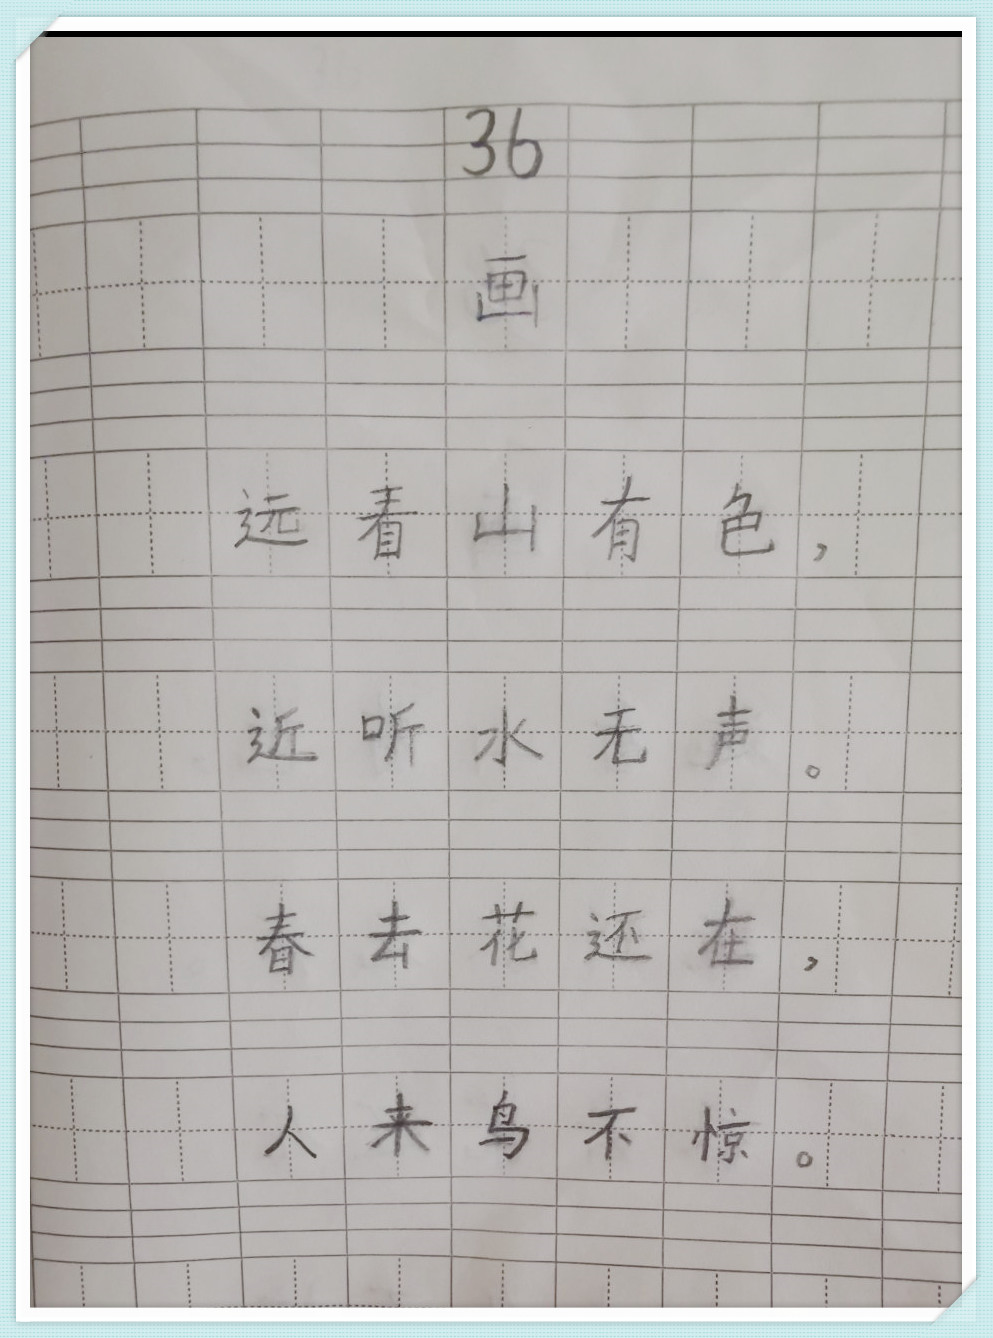 36
画
远看山有色，
近听水无声。
春去花还在，
人来鸟不惊。